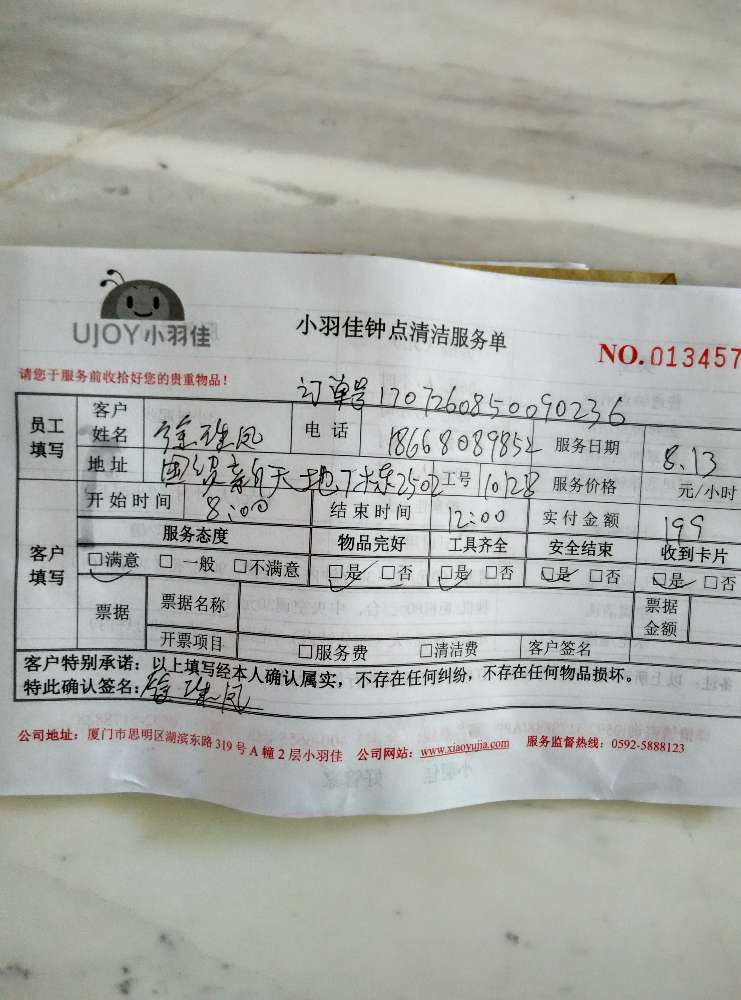 UJOY小羽佳
小羽佳钟点清洁服务单
NO.013457
请您于服务前收拾好您的贵重物品！
订单号1707260850090236
员工填写 客户姓名 徐珠凤 电话 18668089852 服务日期 8.13
地址 国贸新天地7栋2502 工号 10128 服务价格 元/小时
客户填写 开始时间 8:00 结束时间 12:00 实付金额 199
服务态度 物品完好 工具齐全 安全结束 收到卡片
□满意 □一般 □不满意 □是 □否 □是 □否 □是 □否 □是 □否
票据 票据名称 票据金额
开票项目 □服务费 □清洁费 客户签名
客户特别承诺：以上填写经本人确认属实，不存在任何纠纷，不存在任何物品损坏。
特此确认签名：徐珠凤
公司地址：厦门市思明区湖滨东路319号A幢2层小羽佳 公司网站：www.xiaoyujia.com 服务监督热线：0592-5888123